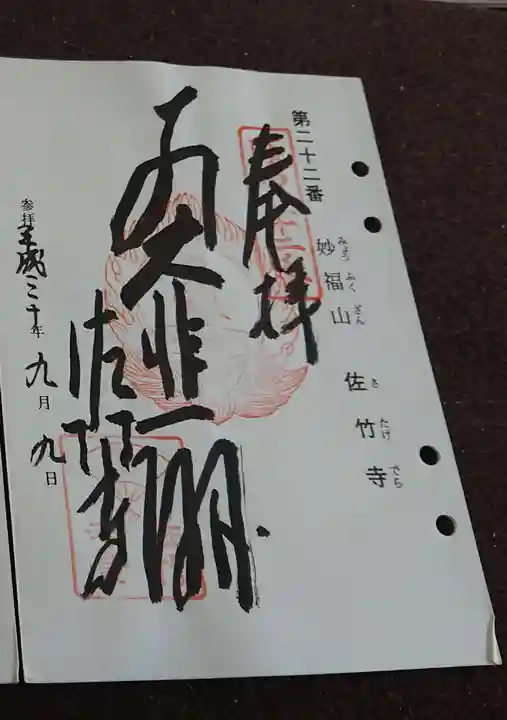 第二十二番
妙福山 佐竹寺
みょう ふく ざん さ たけ でら
奉拝
大悲
佐竹寺
参拝 平成三十年 九月 九日